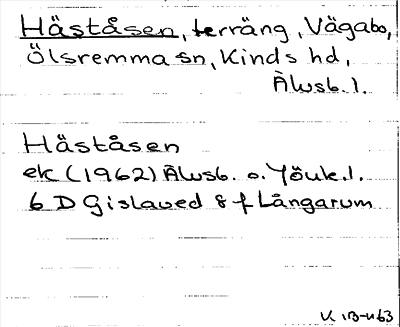 Häståsen, terräng, Vägabo,
Ölsremma sn, Kinds hd,
Älvsb. l.
Häståsen
ek (1962) Älvsb. o. Jönk. l.
6 D Gislaved 8 f Långarum